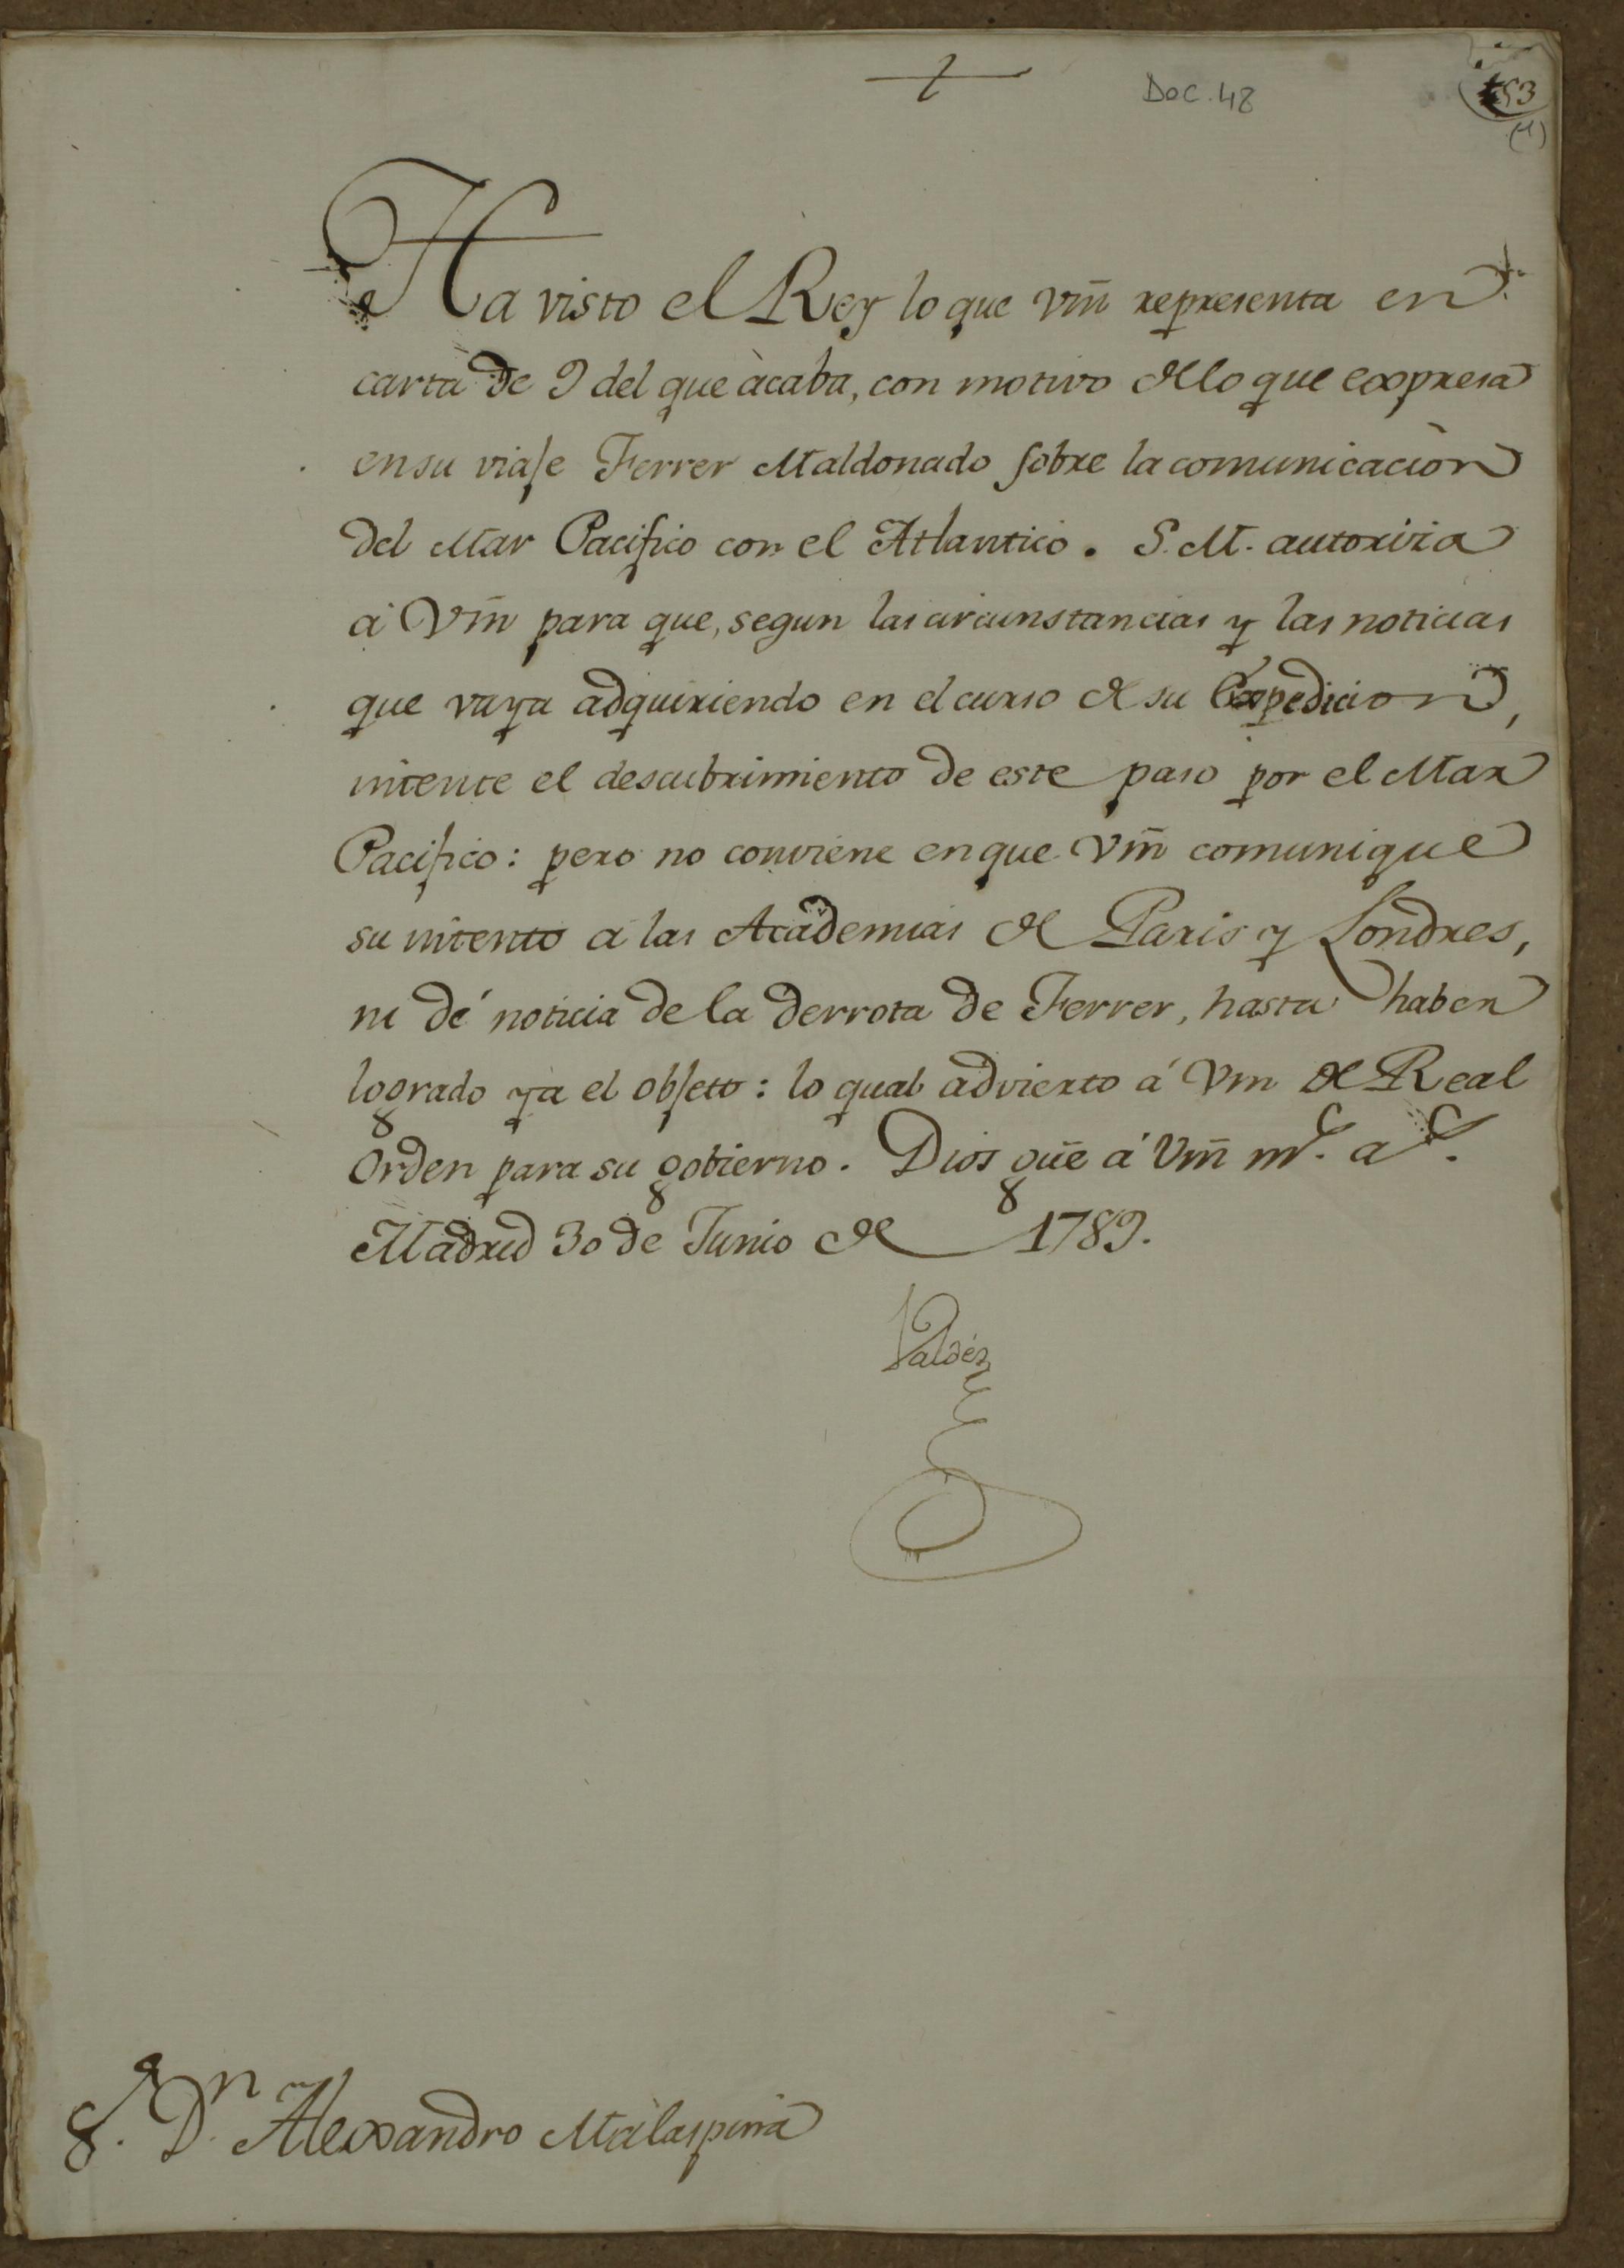 Doc. 48
153
(1)
Ha visto el Rey lo que Vm̃ representa en
carta de 9 del que àcaba, con motivo de lo que expresa
en su viaje Ferrer Maldonado sobre la comunicaciòn
del Mar Pacifico con el Atlantico. S. M. autoriza
á Vm̃ para que, segun las circunstancias y las noticias
que vaya adquiriendo en el curso de su Expedicion,
intente el descubrimiento de este paso por el Mar
Pacifico: pero no conviene en que Vm̃ comunique
su intento a las Academias de Paris y Londres,
ni dé noticia de la derrota de Ferrer, hasta haber
logrado ya el objeto: lo qual advierto á Vm de Real
Orden para su gobierno. Dios güe á Vm̃ m.s a.s
Madrid 30 de Junio de 1789.
Valdés
S.r D.n Alexandro Malaspina